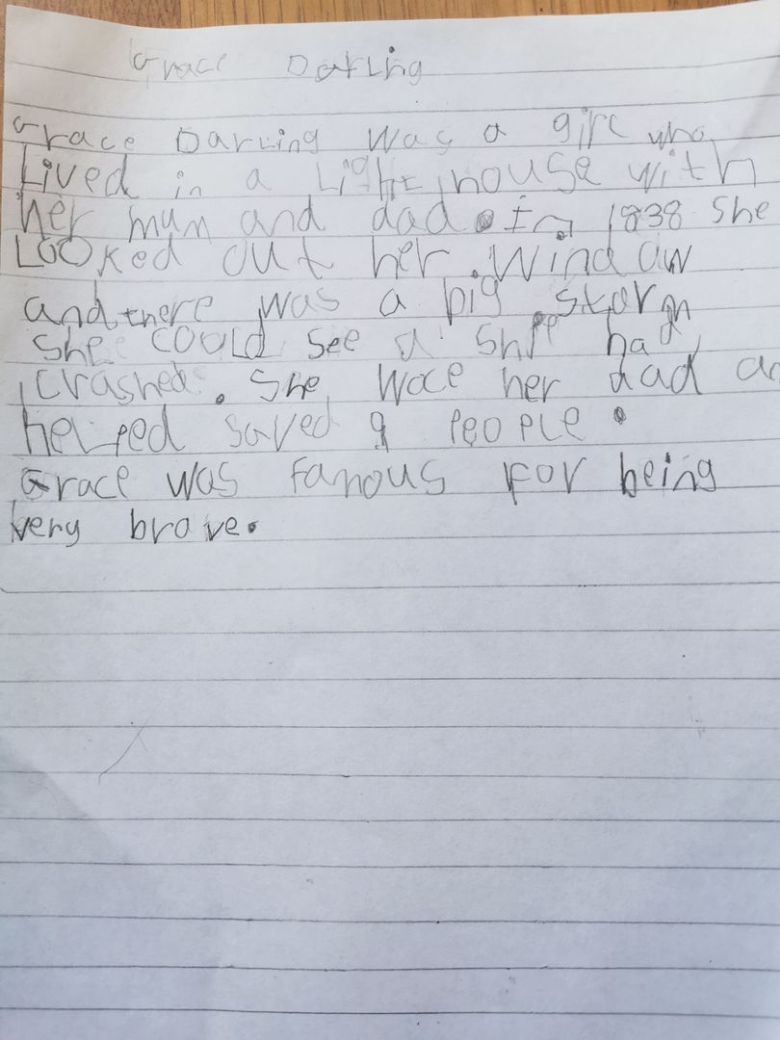 Grace Darling
Grace Darling was a girl who
Lived in a Light house with
her mum and dad. In 1838 She
Looked out her window
and there was a big storm
She could see a Ship had
crashed. She woce her dad an
helped saved 9 People.
Grace was famous for being
very brave.